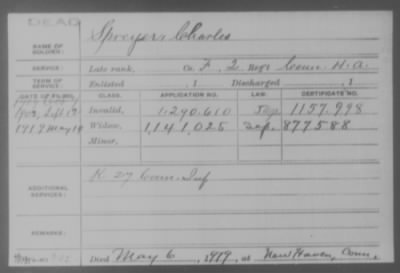 DEAD
NAME OF SOLDIER:
Spreyer, Charles
SERVICE:
Late rank, Co. F, 2 Reg't Conn. H. A.
TERM OF SERVICE:
Enlisted , 1 Discharged , 1
DATE OF FILING. CLASS. APPLICATION NO. LAW. CERTIFICATE NO.
1903, Sept 19 Invalid, 1,290,610 1157,998
1919 May 19 Widow, 1,141,025 877588
Minor,
ADDITIONAL SERVICES:
K. 27 Conn. Inf
REMARKS:
Died May 6, 1919, at New Haven, Conn.